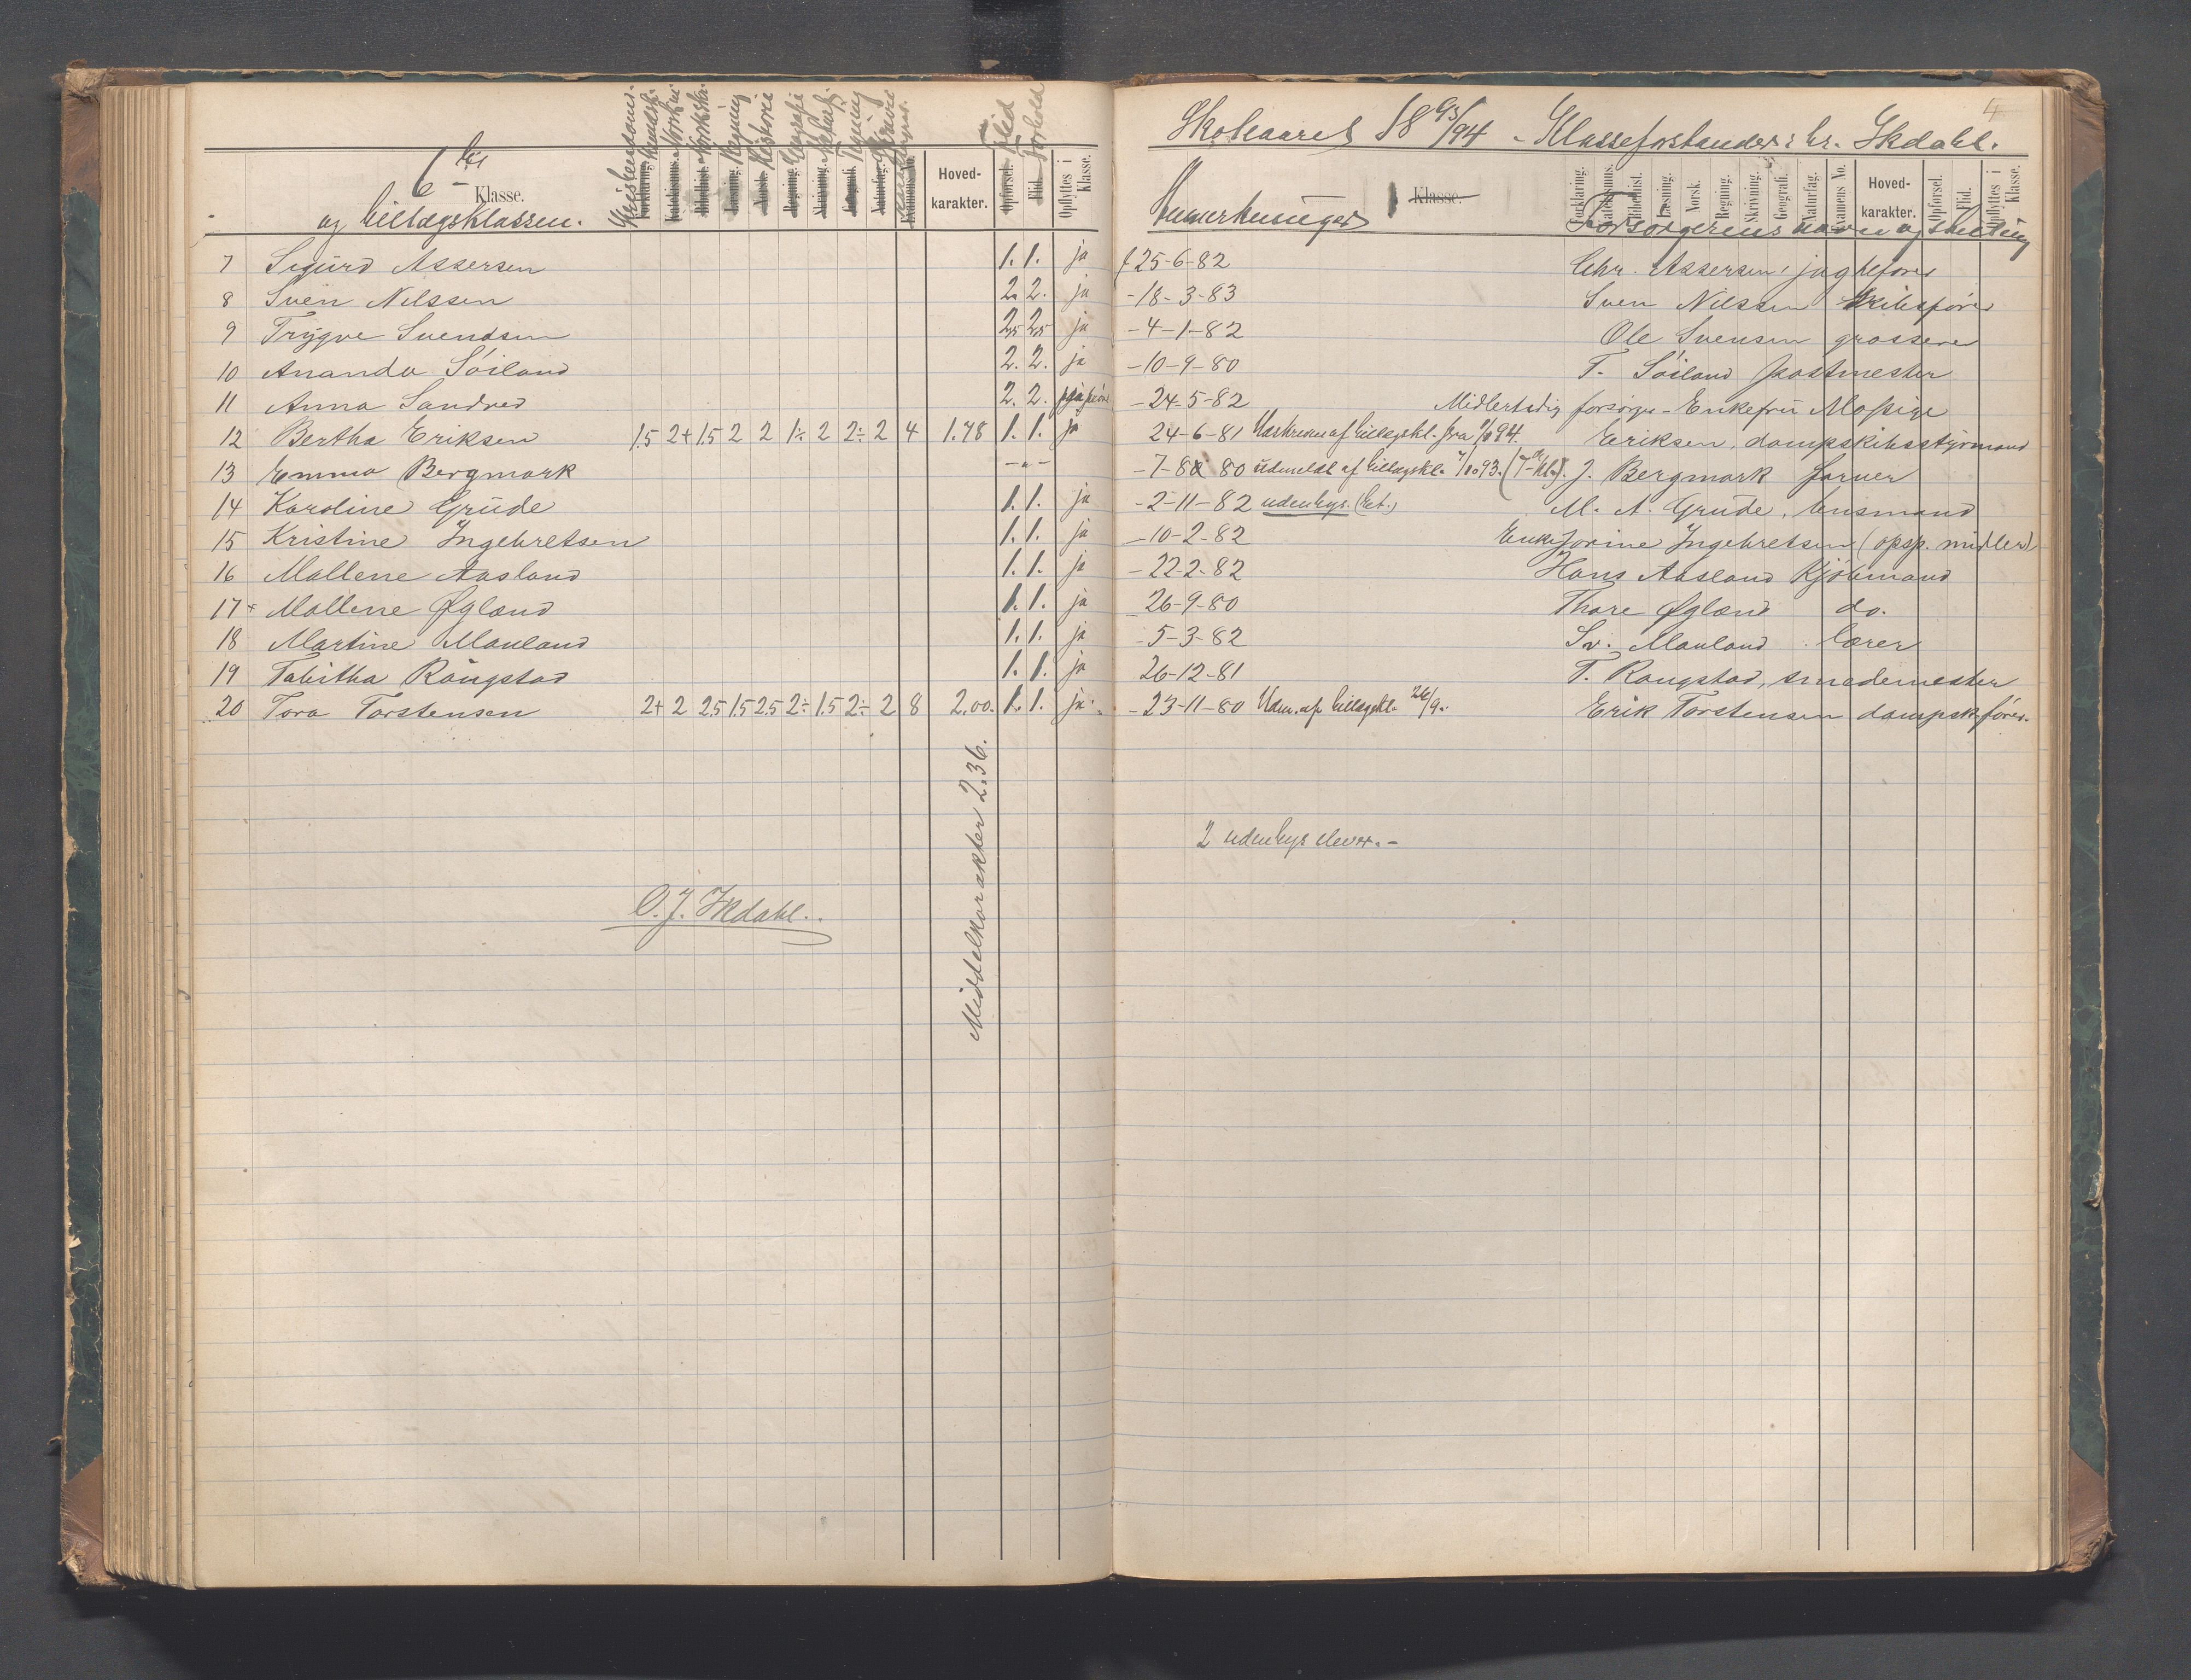 6te Klasse.
og tillægsklassen.
Kristendoms- kundsk. Norsk m. Norsk skr. Regning Historie Geografi Naturf. Tegning Skrivning
Hoved-karakter. Flid Forhold Opflyttes i Klasse.
7 Sigurd Assersen 1. 1. ja
8 Sven Nilssen 2. 2. ja
9 Trygve Svendsen 2,5 2,5 ja
10 Ananda Söiland 2. 2. ja
11 Anna Sandved 2. 2.
12 Bertha Eriksen 1.5 2+ 1.5 2 2 1÷ 2 2÷ 2 4 1.78 1. 1. ja
13 Emma Bergmark – „ –
14 Karoline Grude 1. 1. ja
15 Kristine Ingebretsen 1. 1. ja
16 Mallene Aasland 1. 1. ja
17+ Mallene Øgland 1. 1. ja
18 Martine Mauland 1. 1. ja
19 Tabitha Raugstad 1. 1. ja
20 Tora Torstensen 2+ 2 2.5 1.5 2.5 2÷ 1.5 2÷ 2 8 2.00. 1. 1. ja.
Middelkarakter 2.36.
O. J. Skdahl.
4
Skoleaaret 1893/94 - Klasseforstander: hr. Skdahl.
Anmerkninger Klasse. Forklaring. Katekismus. Bibelhist. Læsning. Norsk. Regning. Skrivning. Geografi. Naturfag. Examens No. Hoved-karakter. Opførsel. Flid. Opflyttes i Klasse.
Forsørgerens navn og stilling
f. 25-6-82 Chr. Assersen, jagtefører
- 18-3-83 Sven Nilssen skibsfører
- 4-1-82 Ole Svensen grosserer
- 10-9-80 T. Söiland postmester
- 24-5-82 Midlertidig forsørger - Enkefru Mossige
24-6-81 Udskreven af tillægskl. fra 94. Eriksen, dampskibsstyrmand
- 7-8 80 udmeldt af tillægskl. 7/10 93. (7de kl.). J. Bergmark farver
- 2-11-82 udenbys. (Het.) M. A. Grude, lensmand
- 10-2-82 Enke Jorine Ingebretsen (opsp. midler)
- 22-2-82 Hans Aasland Kjöbmand
26-9-80 Thore Øgland do.
- 5-3-82 Sv. Mauland lærer
26-12-81 T. Raugstad, smedemester
- 23-11-80 Udm. af tillægskl. 26/9. Erik Torstensen dampsk.förer.
2 udenbys elever. -